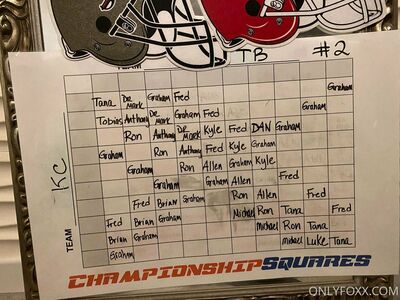 TEAM TB #2
Graham
Tana De Mark Graham Fred Graham
Tobias Anthony De Mark Graham Fred
Ron Anthony De Mark Kyle Fred DAN Graham
Graham Ron Anthony Fred Kyle Graham
Graham Ron Allen Graham Kyle
Graham Graham Allen Fred
Fred Brian Graham Ron Allen Fred
Fred Brian Graham Michael Ron Tana Fred
Brian Graham Michael Ron Tana
Graham Michael Luke Tana
TEAM KC
CHAMPIONSHIP SQUARES
ONLYFOXX.COM